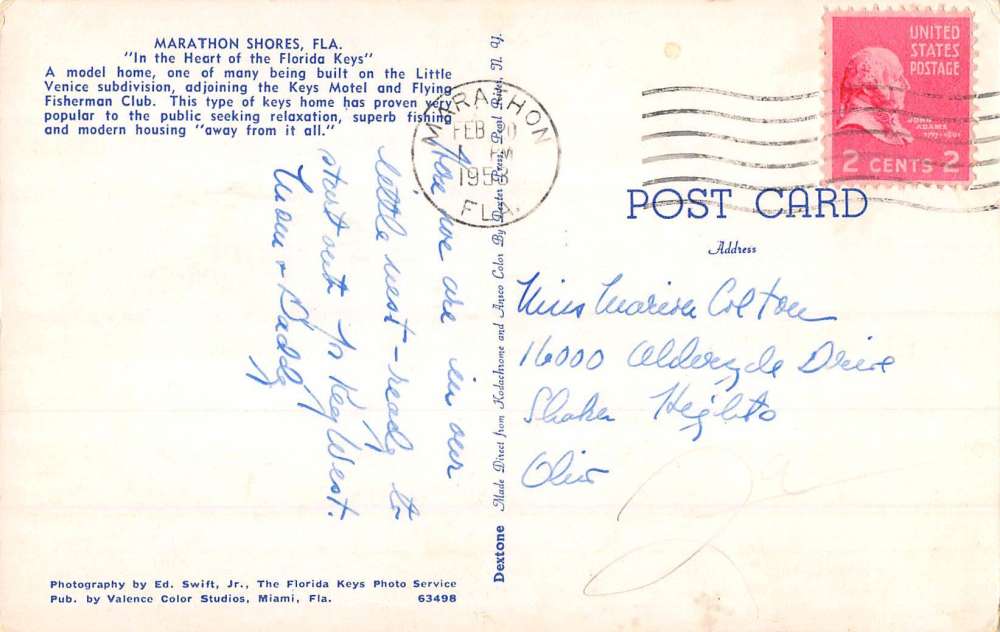 MARATHON SHORES, FLA.
"In the Heart of the Florida Keys"
A model home, one of many being built on the Little
Venice subdivision, adjoining the Keys Motel and Flying
Fisherman Club. This type of keys home has proven very
popular to the public seeking relaxation, superb fishing
and modern housing "away from it all."
Here we are in our
little nest - ready to
start out for Key West.
Mom & Daddy
Photography by Ed. Swift, Jr., The Florida Keys Photo Service
Pub. by Valence Color Studios, Miami, Fla. 63498
Dextone Made Direct from Kodachrome and Ansco Color By Dexter Press, Pearl River, N. Y.
MARATHON
FEB 20
PM
1958
FLA.
UNITED
STATES
POSTAGE
JOHN
ADAMS
1797-1801
2 CENTS 2
POST CARD
Address
Miss Marion Colton
16000 Aldersyde Drive
Shaker Heights
Ohio